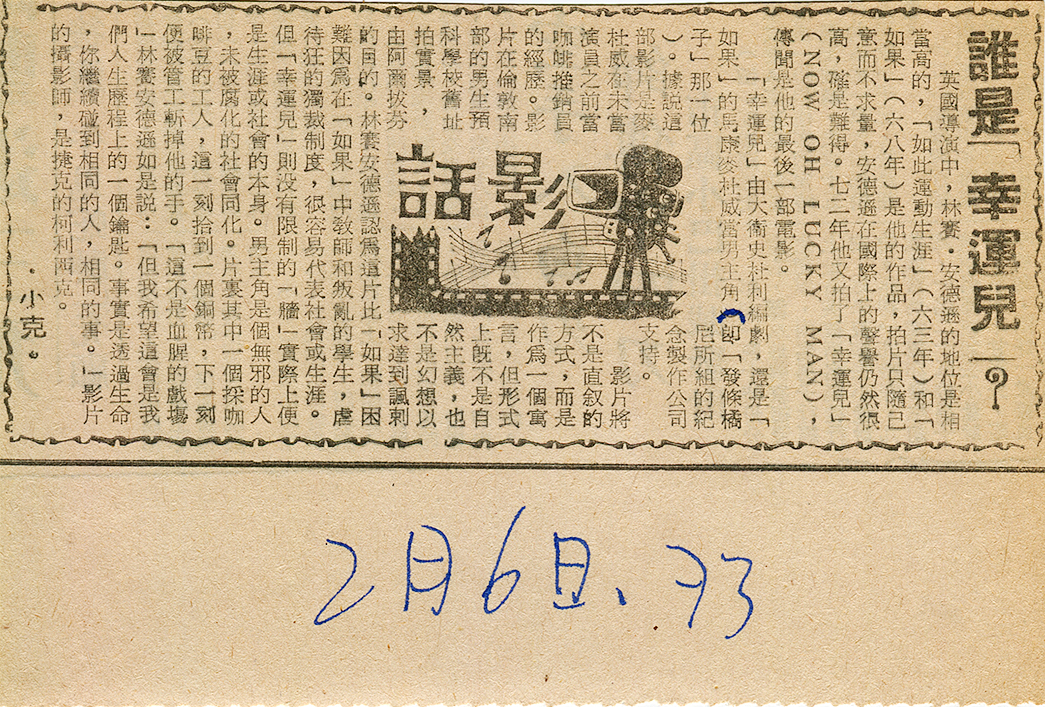 誰是「幸運兒」?
英國導演中,林賽·安德遜的地位是相
當高的,「如此運動生涯」(六三年)和「
如果」(六八年)是他的作品,拍片只隨己
意而不求量,安德遜在國際上的聲譽仍然很
高,確是難得。七二年他又拍了「幸運兒」
(NOW OH LUCKY MAN),
傳聞是他的最後一部電影。
「幸運兒」由大衛史杜利編劇,還是「
如果」的馬康麥杜威當男主角(即「發條橘
子」那一位
)。據說這
部影片是麥
杜威在未當
演員之前當
咖啡推銷員
的經歷。影
片在倫敦南
部的男生預
科學校舊址
拍實景,
由阿爾拔芬
影話
尼所組的紀
念製作公司
支持。
影片將
不是直叙的
方式,而是
作爲一個寓
言,但形式
上旣不是自
然主義,也
不是幻想以
求達到諷刺
的目的。林賽安德遜認爲這片比「如果」困
難因爲在「如果」中教師和叛亂的學生,虐
待狂的獨裁制度,很容易代表社會或生涯。
但「幸運兒」則没有限制的「牆」實際上便
是生涯或社會的本身。男主角是個無邪的人
,未被腐化的社會同化。片裏其中一個採咖
啡豆的工人,這一刻拾到一個銅幣,下一刻
便被管工斬掉他的手。「這不是血腥的戲塲
」林賽安德遜如是說:「但我希望這會是我
們人生歷程上的一個鑰匙。事實是透過生命
,你繼續碰到相同的人,相同的事。」影片
的攝影師,是捷克的柯利西克。
·小克。
2月6日、73